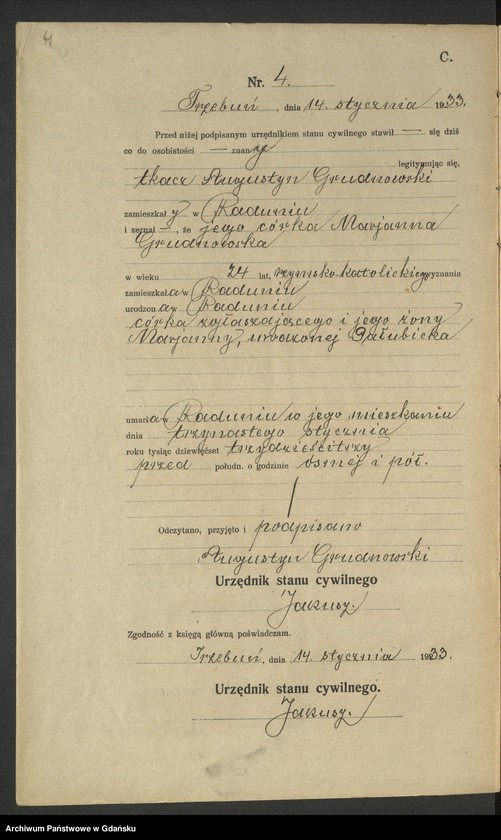 4
C.
Nr. 4.
Trzebuń, dnia 14. stycznia 1933.
Przed niżej podpisanym urzędnikiem stanu cywilnego stawił — się dziś
co do osobistości — znany
legitymując się,
tkacz Augustyn Grudnowski
zamieszkały w Raduniu
i zeznał —, że jego córka Marjanna
Grudnowska
w wieku 24 lat, rzymsko-katolickiego wyznania
zamieszkała w Raduniu
urodzona w Raduniu
córka zgłaszającego i jego żony
Marjanny, urodzonej Gałubicka
umarła w Raduniu w jego mieszkaniu
dnia trzynastego stycznia
roku tysiąc dziewięćset trzydzieścitrzy
przed połudn. o godzinie ósmej i pół.
Odczytano, przyjęto i podpisano
Augustyn Grudnowski
Urzędnik stanu cywilnego
Jakusz.
Zgodność z księgą główną poświadczam.
Trzebuń, dnia 14. stycznia 1933.
Urzędnik stanu cywilnego.
Jakusz.
Archiwum Państwowe w Gdańsku